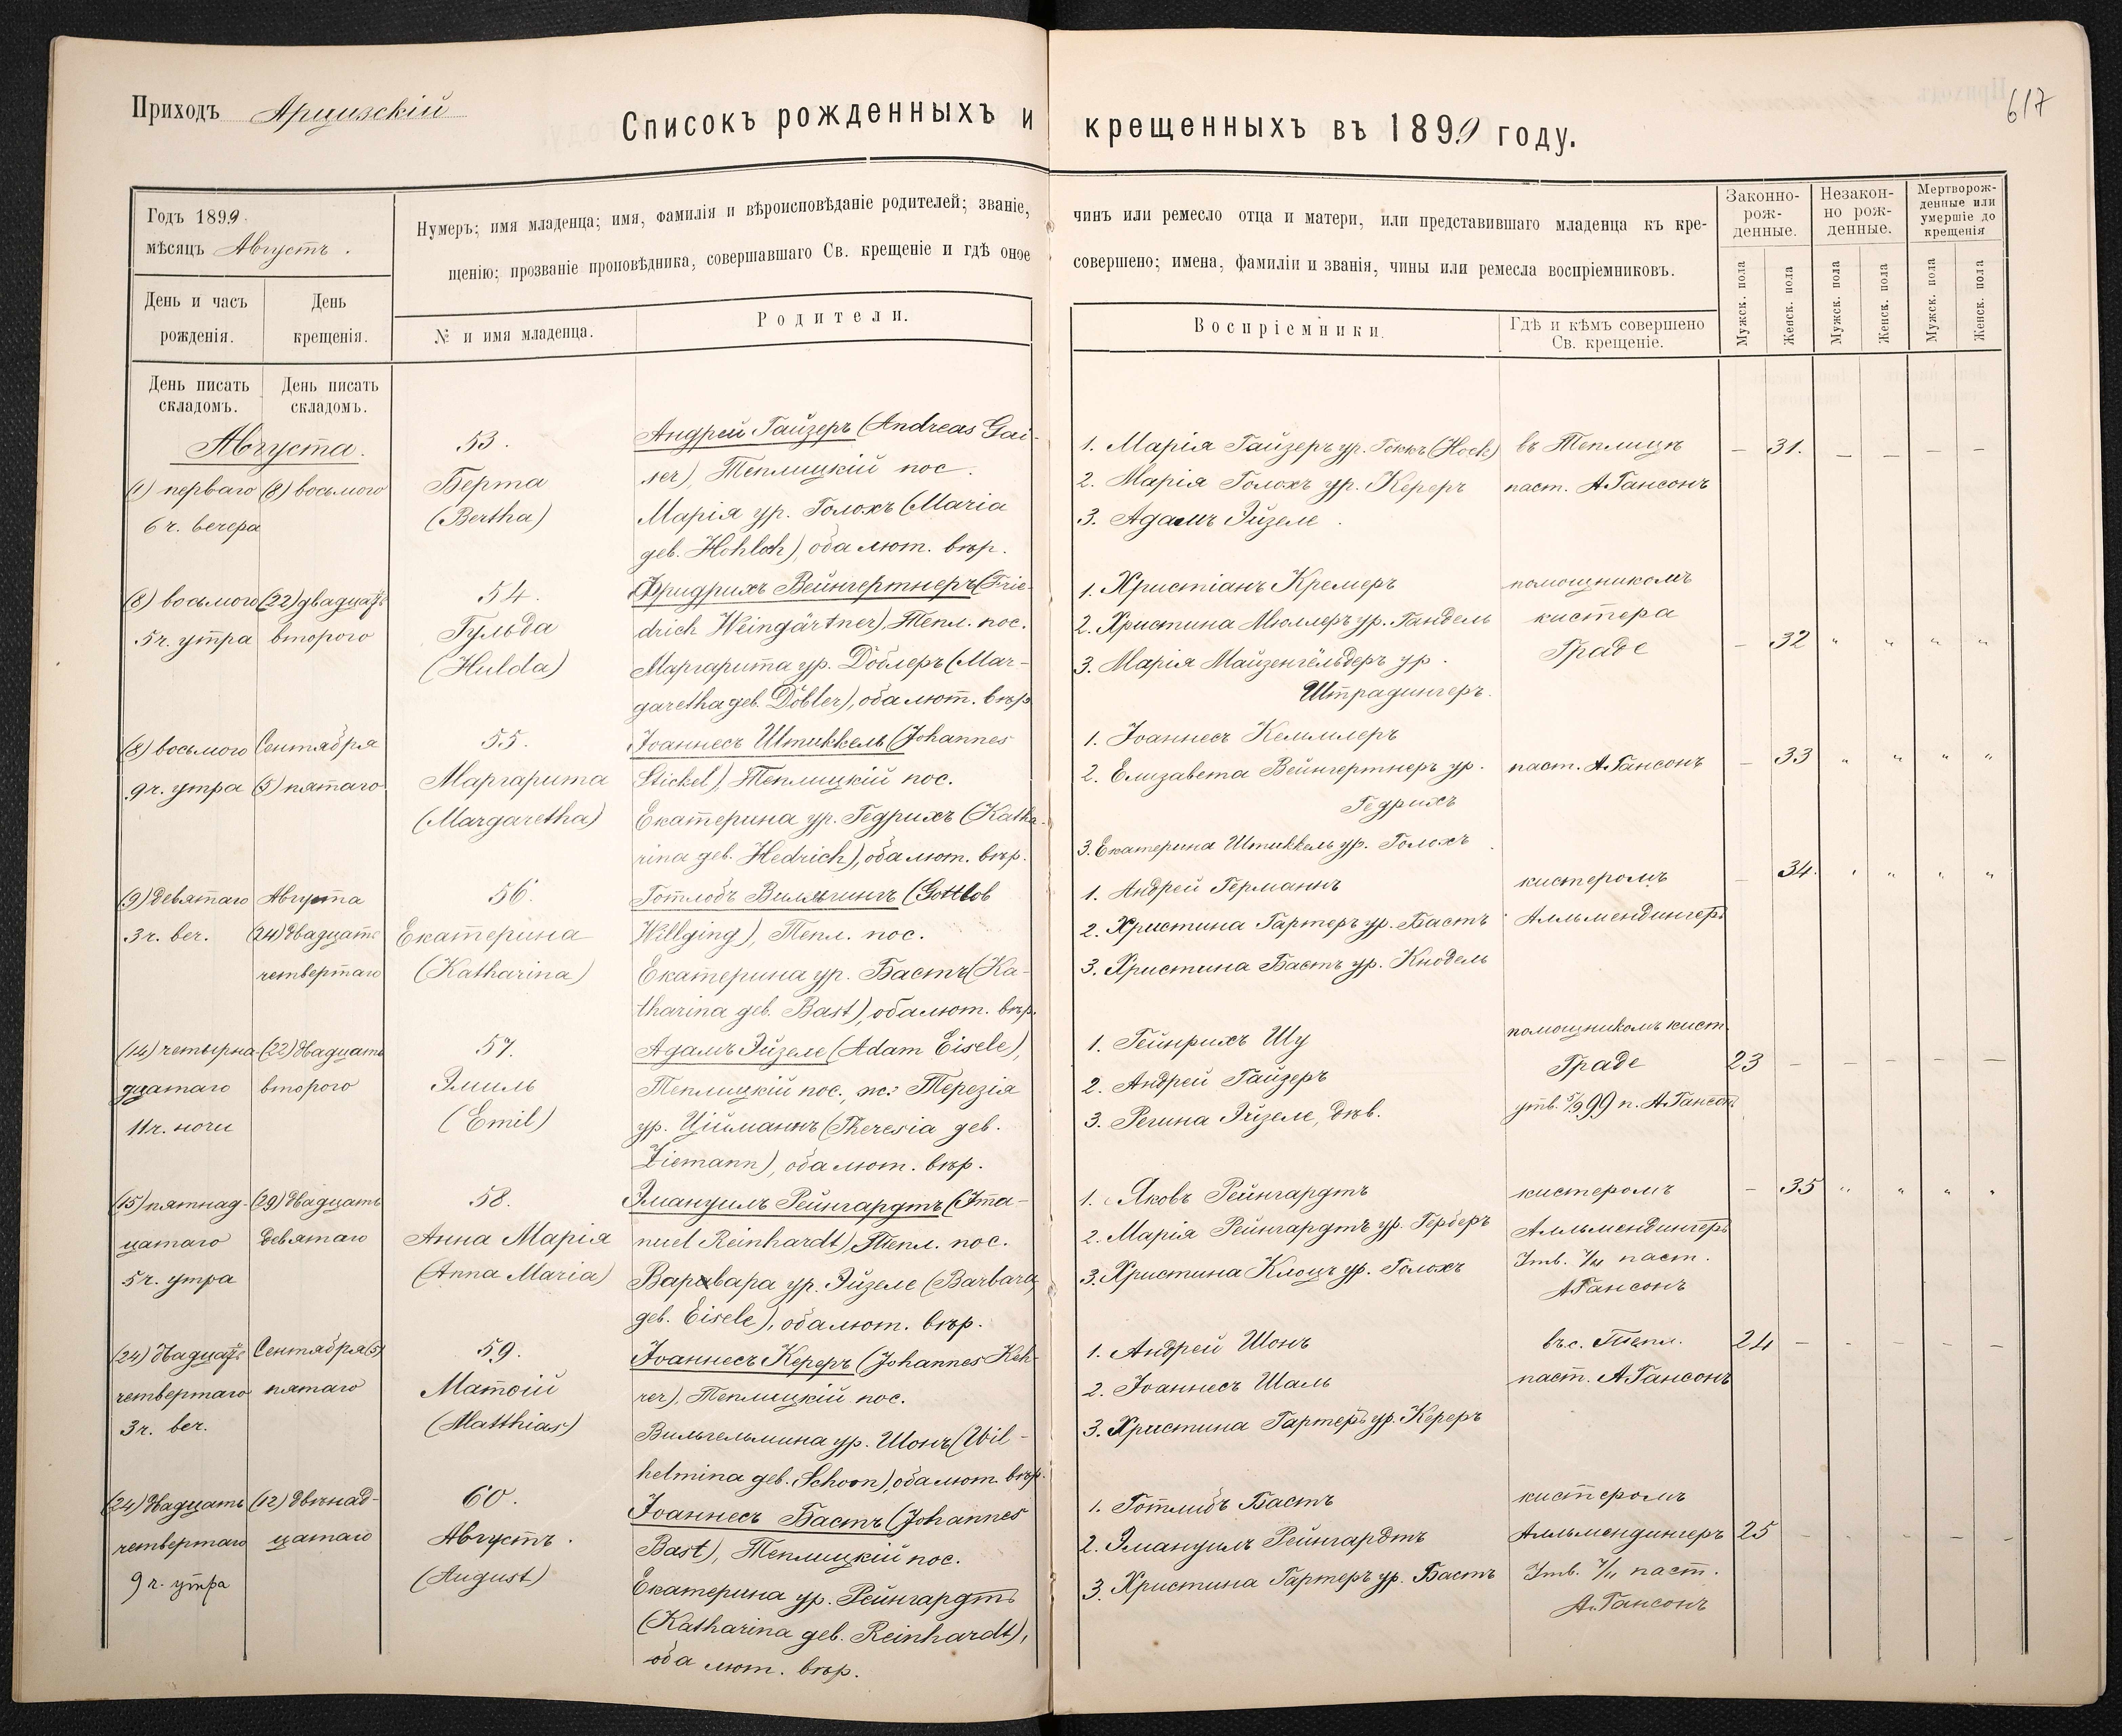 Приходъ Арцизскій
Списокъ рожденныхъ и крещенныхъ въ 1899 году.
617
Годъ 1899.
мѣсяцъ Августъ.
Нумеръ; имя младенца; имя, фамилія и вѣроисповѣданіе родителей; званіе, чинъ или ремесло отца и матери, или представившаго младенца къ кре-
щенію; прозваніе проповѣдника, совершавшаго Св. крещеніе и гдѣ оное совершено; имена, фамиліи и званія, чины или ремесла воспріемниковъ.
Законно-
рож-
денные.
Незакон-
но рож-
денные.
Мертворож-
денные или
умершіе до
крещенія
День и часъ
рожденія.
День
крещенія.
№ и имя младенца.
Родители.
Воспріемники.
Гдѣ и кѣмъ совершено
Св. крещеніе.
Мужск. пола
Женск. пола
Мужск. пола
Женск. пола
Мужск. пола
Женск. пола
День писать
складомъ.
День писать
складомъ.
Августа.
(1) перваго
6 ч. вечера
(8) восьмого
53.
Берта
(Bertha)
Андрей Гайзеръ (Andreas Gai-
ser), Теплицкій пос.
Марія ур. Голохъ (Maria
geb. Hohloch), оба лют. вѣр.
1. Марія Гайзеръ ур. Гоккъ (Hock)
2. Марія Голохъ ур. Кереръ
3. Адамъ Эйзеле.
въ Теплицѣ
паст. А. Гансонъ
— 31. — — — —
(8) восьмого
5 ч. утра
(22) двадцать
второго
54.
Гульда
(Hulda)
Фридрихъ Вейнгертнеръ (Frie-
drich Weingärtner), Тепл. пос.
Маргарита ур. Доблеръ (Mar-
garetha geb. Döbler), оба лют. вѣр.
1. Христіанъ Кремеръ
2. Христина Мюллеръ ур. Гандель
3. Марія Майзенгёльдеръ ур.
Штрадингеръ.
помощникомъ
кистера
Граде
— 32 " " " "
(8) восьмого
9 ч. утра
Сентября
(5) пятаго
55.
Маргарита
(Margaretha)
Іоаннесъ Штиккель (Johannes
Stickel), Теплицкій пос.
Екатерина ур. Гедрихъ (Katha-
rina geb. Hedrich), оба лют. вѣр.
1. Іоаннесъ Кеммлеръ
2. Елизавета Вейнгертнеръ ур.
Гедрихъ
3. Екатерина Штиккель ур. Голохъ
паст. А. Гансонъ
— 33 " " " "
(9) девятаго
3 ч. веч.
Августа
(24) двадцать
четвертаго
56.
Екатерина
(Katharina)
Готлобъ Вилльгингъ (Gottlob
Willging), Тепл. пос.
Екатерина ур. Бастъ (Ka-
tharina geb. Bast), оба лют. вѣр.
1. Андрей Германнъ
2. Христина Гартеръ ур. Бастъ
3. Христина Бастъ ур. Кнодель
кистеромъ
Алльмендингеръ
— 34. " " " "
(14) четырна-
дцатаго
11 ч. ночи
(22) двадцать
второго
57.
Эмиль
(Emil)
Адамъ Эйзеле (Adam Eisele),
Теплицкій пос., ж: Терезія
ур. Ційманнъ (Theresia geb.
Ziemann), оба лют. вѣр.
1. Гейнрихъ Шу
2. Андрей Гайзеръ
3. Регина Эйзеле, дѣв.
помощникомъ кист.
Граде
утв. 5/9 99 п. А. Гансонъ
23 — — — — —
(15) пятнад-
цатаго
5 ч. утра
(29) двадцать
девятаго
58.
Анна Марія
(Anna Maria)
Эмануилъ Рейнгардтъ (Ima-
nuel Reinhardt), Тепл. пос.
Варвара ур. Эйзеле (Barbara
geb. Eisele), оба лют. вѣр.
1. Яковъ Рейнгардтъ
2. Марія Рейнгардтъ ур. Герберъ
3. Христина Клоцъ ур. Голохъ
кистеромъ
Алльмендингеръ
Утв. 7/11 паст.
А. Гансонъ
— 35 " " " "
(24) двадцать
четвертаго
3 ч. веч.
Сентября (5)
пятаго
59.
Матѳій
(Matthias)
Іоаннесъ Кереръ (Johannes Keh-
rer), Теплицкій пос.
Вильгельмина ур. Шонъ (Wil-
helmina geb. Schoon), оба лют. вѣр.
1. Андрей Шонъ
2. Іоаннесъ Шаль
3. Христина Гартеръ ур. Кереръ
въ с. Тепл.
паст. А. Гансонъ
24 — — — — —
(24) двадцать
четвертаго
9 ч. утра
(12) двѣнад-
цатаго
60.
Августъ.
(August)
Іоаннесъ Бастъ (Johannes
Bast), Теплицкій пос.
Екатерина ур. Рейнгардтъ
(Katharina geb. Reinhardt),
оба лют. вѣр.
1. Готлибъ Бастъ
2. Эмануилъ Рейнгардтъ
3. Христина Гартеръ ур. Бастъ
кистеромъ
Алльмендингеръ
Утв. 7/11 паст.
А. Гансонъ
25 — — — — —